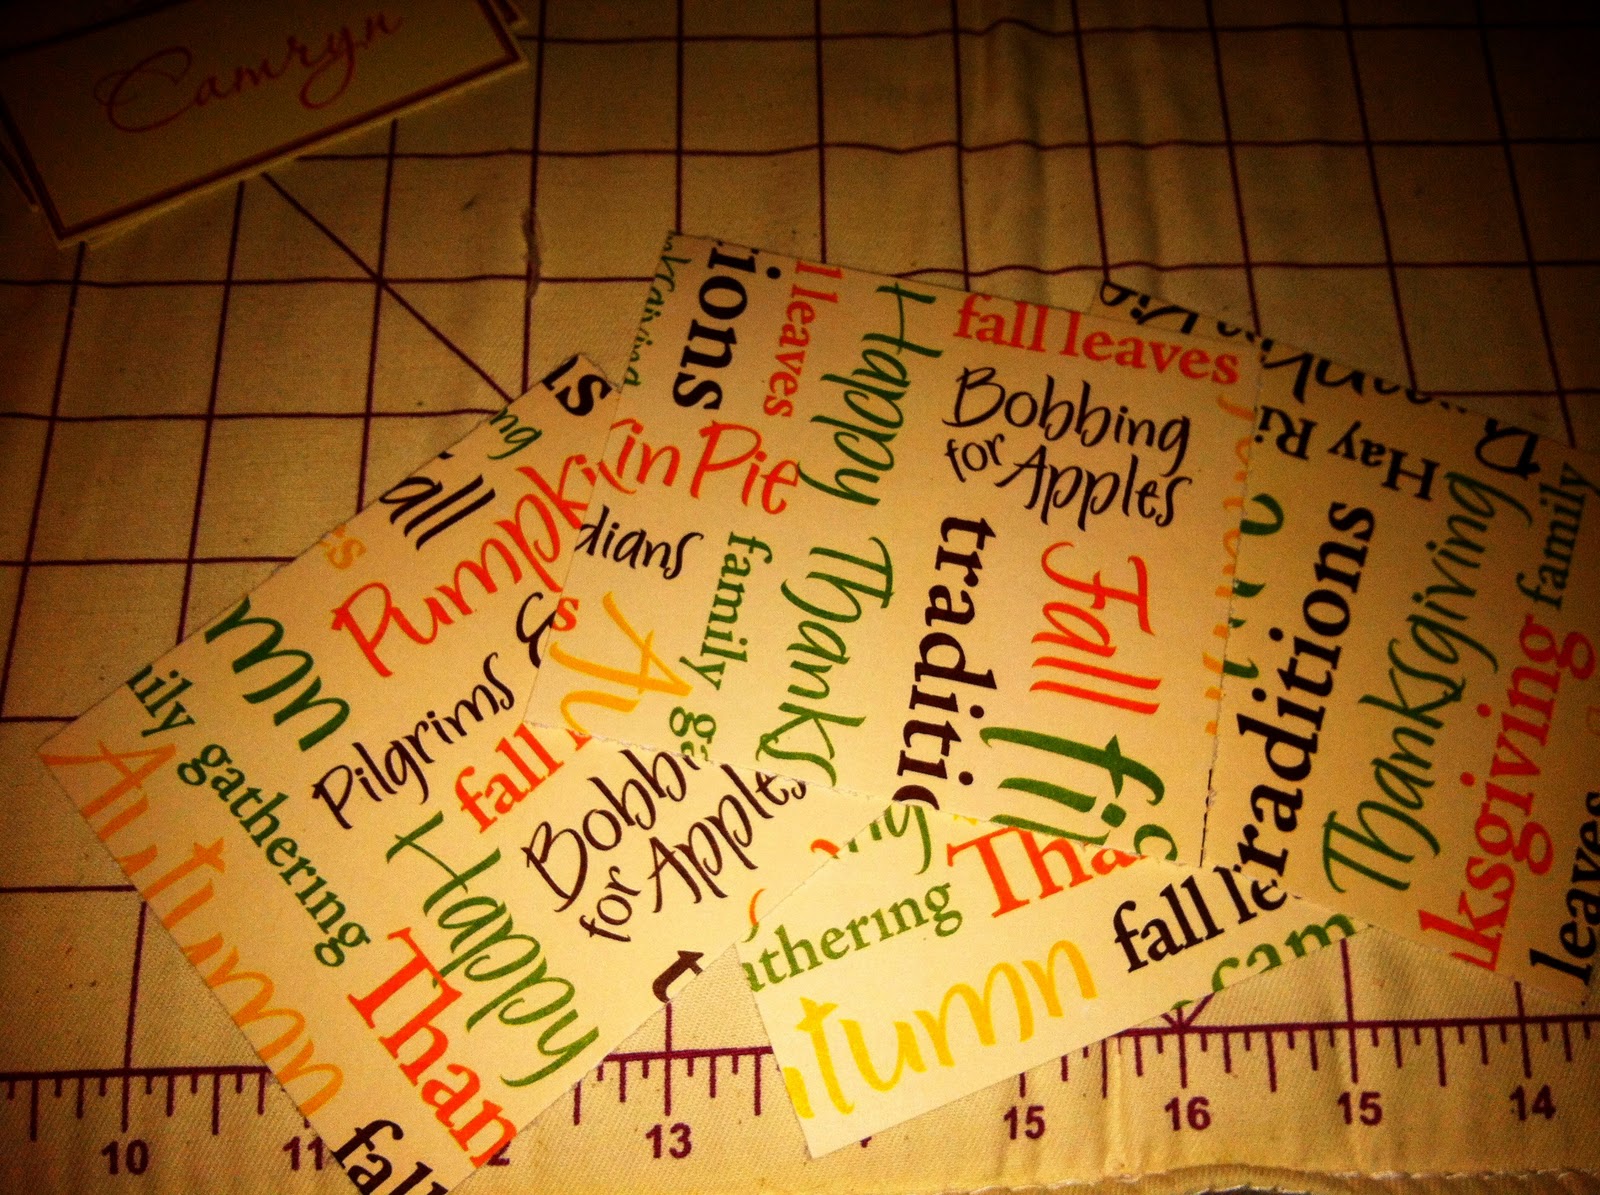 Camryn
ions
leaves
Happy
Thanks
fall leaves
Bobbing
for Apples
in Pie
dians
family
Fall
traditi
Hay Ri
raditions
Thanksgiving
ksgiving
family
leaves
ng
all
Pumpki
mn
Pilgrims &
fall
ily gathering
Autumn
Happy
Than
Bobbi
for Apples
fall
athering
Tha
utumn
fall le
10 11 13 15 16 15 14